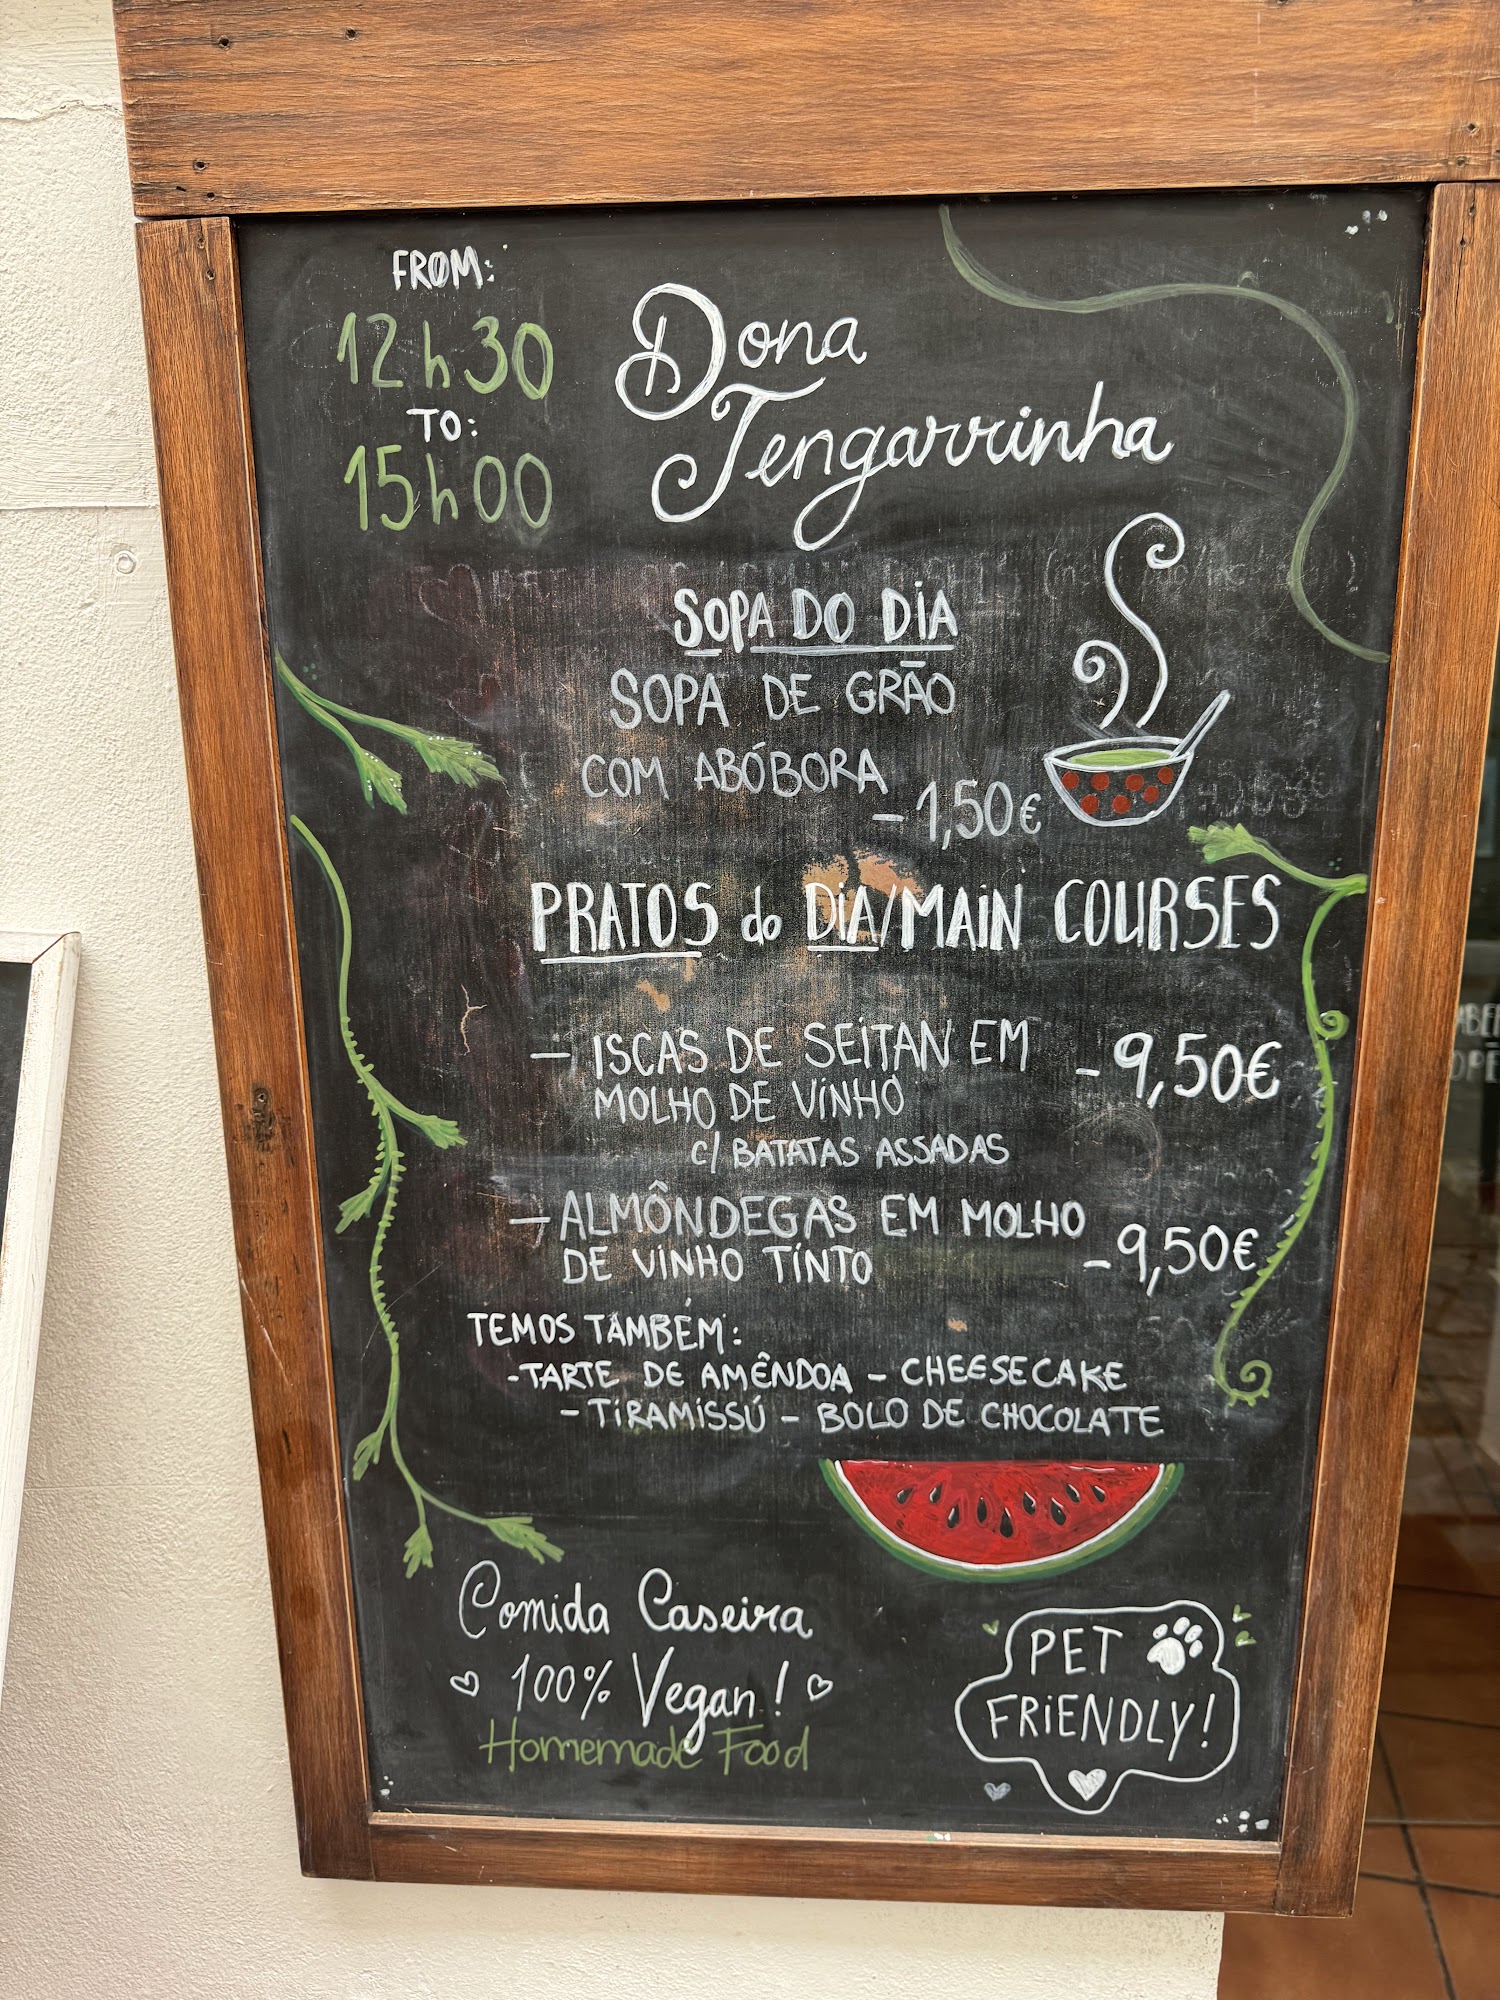 FROM:
12h30
TO:
15h00
Dona
Tengarrinha
SOPA DO DIA
SOPA DE GRÃO
COM ABÓBORA
- 1,50€
PRATOS do DIA/MAIN COURSES
- ISCAS DE SEITAN EM
MOLHO DE VINHO
- 9,50€
C/ BATATAS ASSADAS
- ALMÔNDEGAS EM MOLHO
DE VINHO TINTO
- 9,50€
TEMOS TAMBÉM:
- TARTE DE AMÊNDOA - CHEESECAKE
- TIRAMISSÚ - BOLO DE CHOCOLATE
Comida Caseira
100% Vegan!
Homemade Food
PET
FRIENDLY!